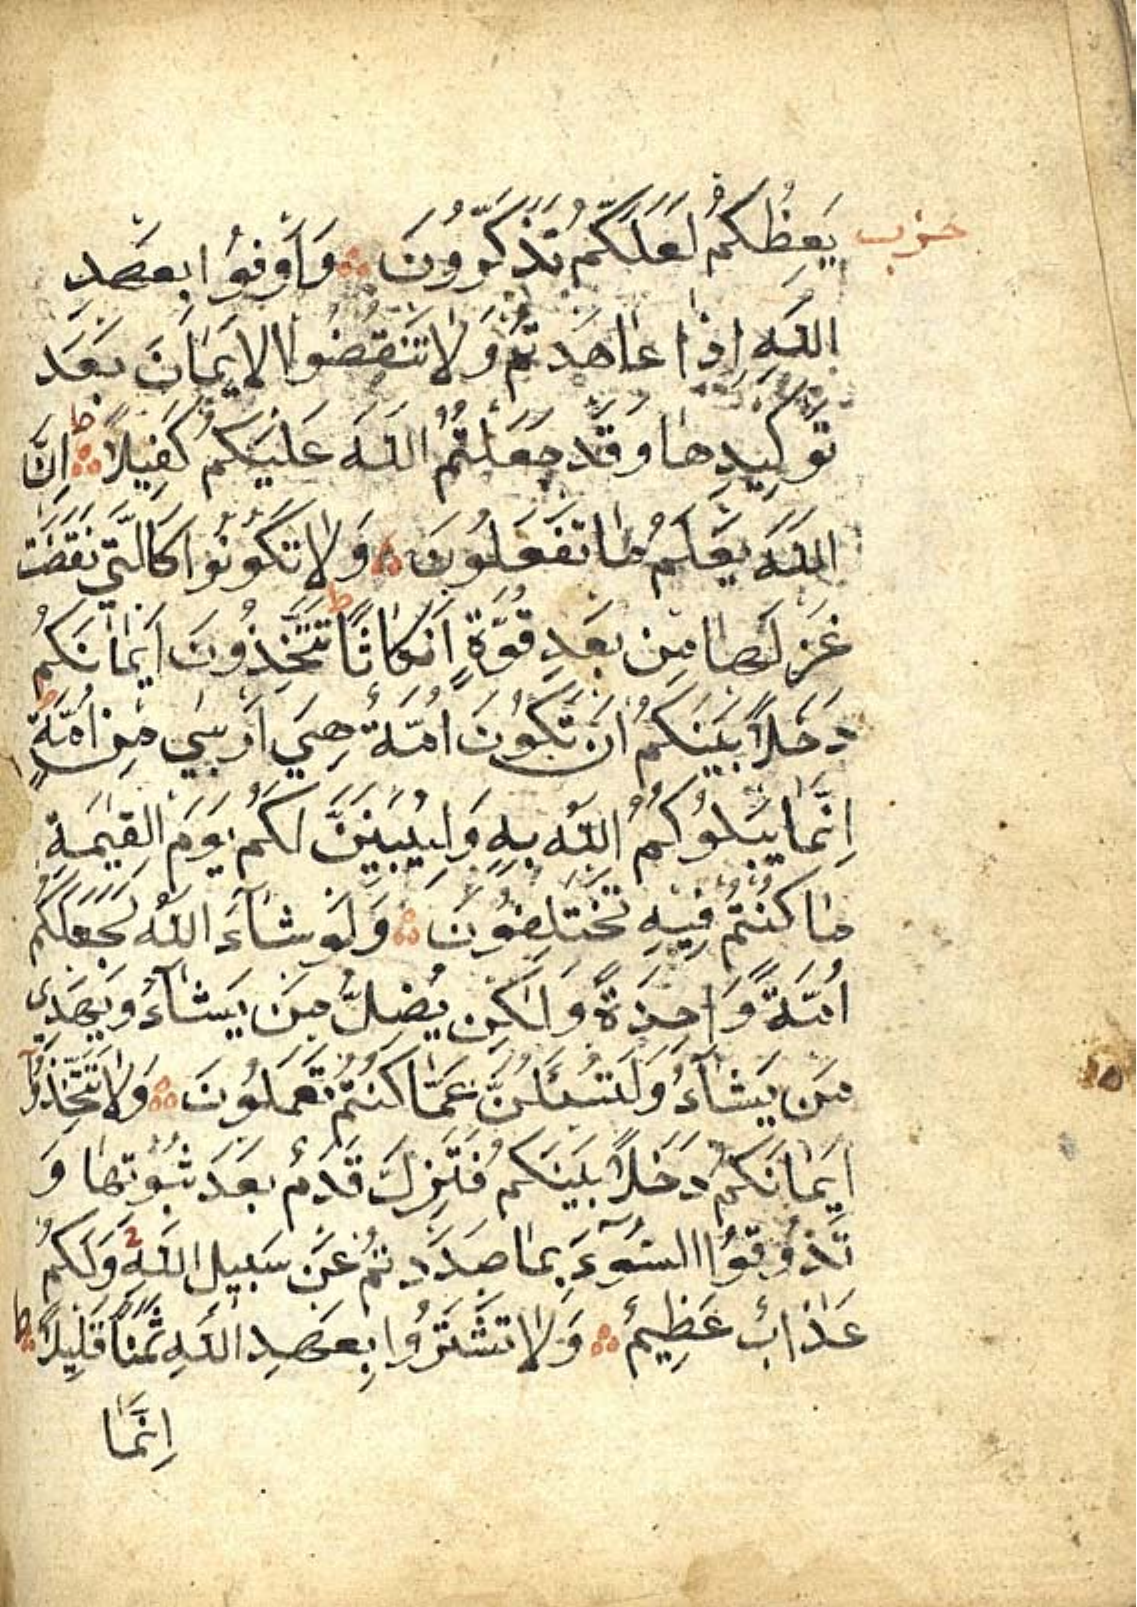 حزب
يَعِظُكُمْ لَعَلَّكُمْ تَذَكَّرُونَ وَاَوْفُوا بِعَهْدِ
اللَّهِ اِذَا عَاهَدْتُمْ وَلَا تَنْقُضُوا الْاَيْمَانَ بَعْدَ
تَوْكِيدِهَا وَقَدْ جَعَلْتُمُ اللَّهَ عَلَيْكُمْ كَفِيلًا ط اِنَّ
اللَّهَ يَعْلَمُ مَا تَفْعَلُونَ وَلَا تَكُونُوا كَالَّتِي نَقَضَتْ
غَزْلَهَا مِنْ بَعْدِ قُوَّةٍ اَنْكَاثًا ط تَتَّخِذُونَ اَيْمَانَكُمْ
دَخَلًا بَيْنَكُمْ اَنْ تَكُونَ اُمَّةٌ هِيَ اَرْبٰى مِنْ اُمَّةٍ ط
اِنَّمَا يَبْلُوكُمُ اللَّهُ بِهِ وَلَيُبَيِّنَنَّ لَكُمْ يَوْمَ الْقِيٰمَةِ
مَا كُنْتُمْ فِيهِ تَخْتَلِفُونَ وَلَوْ شَآءَ اللَّهُ لَجَعَلَكُمْ
اُمَّةً وَاحِدَةً وَلٰكِنْ يُضِلُّ مَنْ يَشَآءُ وَيَهْدِي
مَنْ يَشَآءُ وَلَتُسْئَلُنَّ عَمَّا كُنْتُمْ تَعْمَلُونَ وَلَا تَتَّخِذُوا
اَيْمَانَكُمْ دَخَلًا بَيْنَكُمْ فَتَزِلَّ قَدَمٌ بَعْدَ ثُبُوتِهَا وَ
تَذُوقُوا السُّوٓءَ بِمَا صَدَدْتُمْ عَنْ سَبِيلِ اللَّهِ وَلَكُمْ
عَذَابٌ عَظِيمٌ وَلَا تَشْتَرُوا بِعَهْدِ اللَّهِ ثَمَنًا قَلِيلًا ط
اِنَّمَا